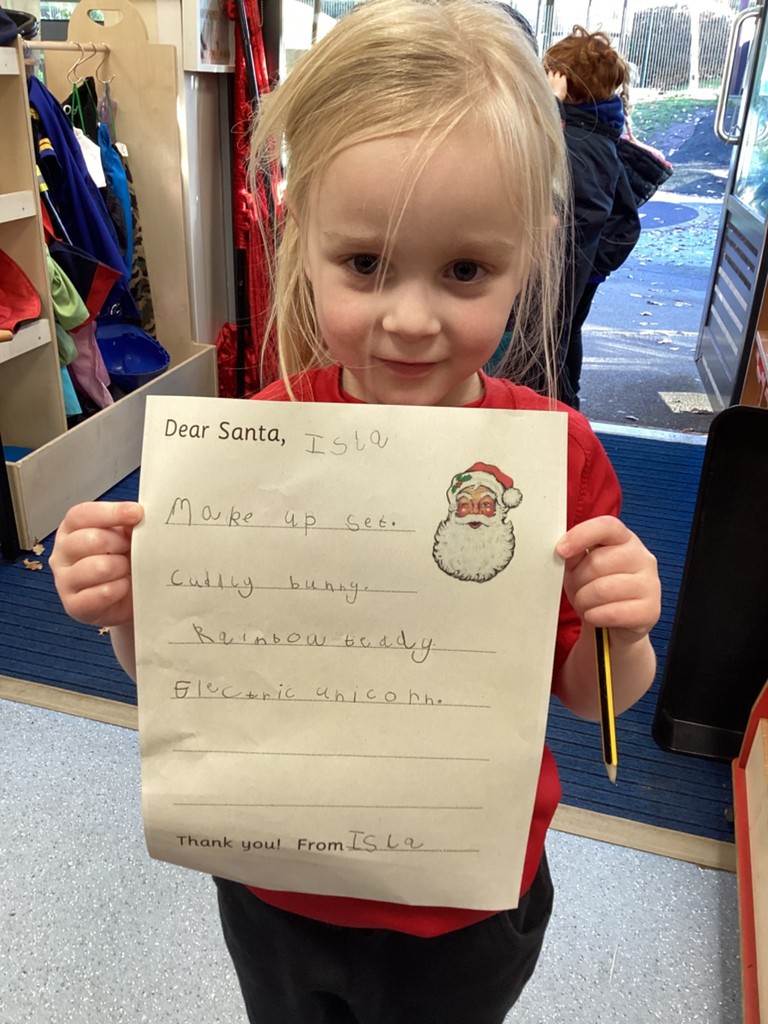 Dear Santa, Isla
Make up set.
Cuddly bunny.
Rainbow teady.
Electric unicorn.
Thank you! From Isla